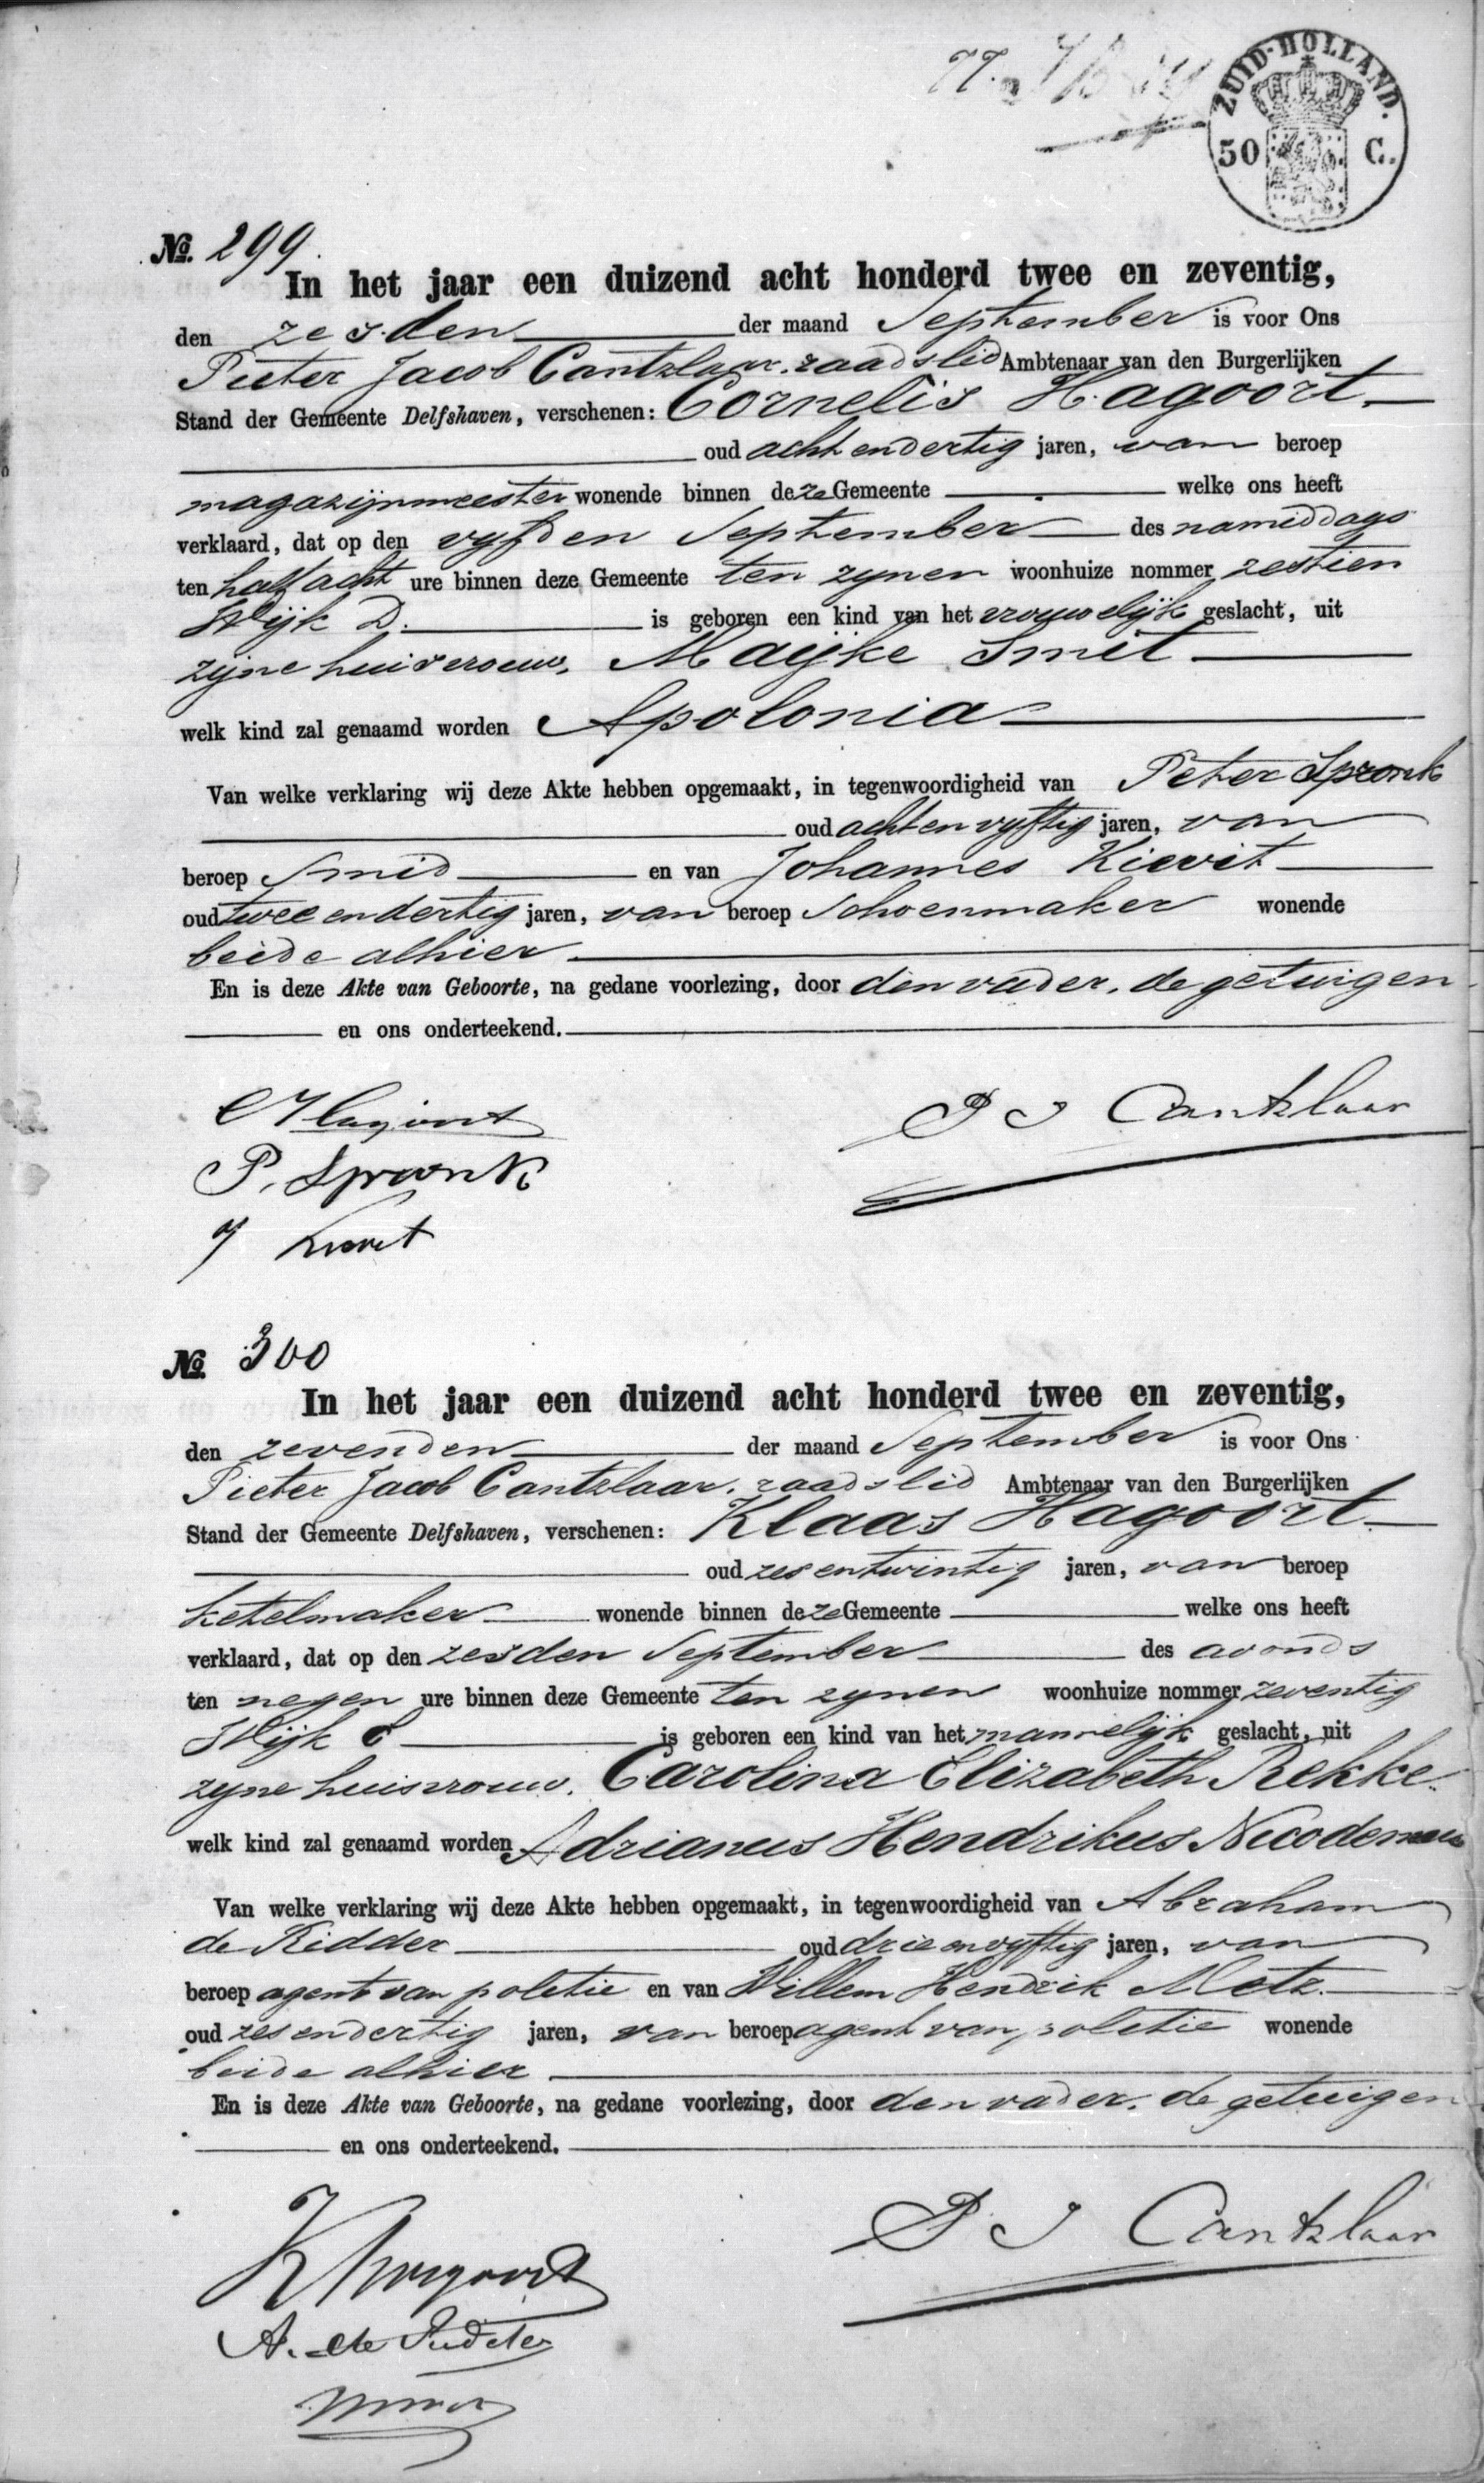 ZUID-HOLLAND.
50 C.
No. 299.
In het jaar een duizend acht honderd twee en zeventig,
den zesden der maand September is voor Ons
Pieter Jacob Cantzlaar, raadslid Ambtenaar van den Burgerlijken
Stand der Gemeente Delfshaven, verschenen: Cornelis Hagoort
oud acht en dertig jaren, van beroep
magazijnmeester wonende binnen deze Gemeente welke ons heeft
verklaard, dat op den vyfden September des namiddags
ten half acht ure binnen deze Gemeente ten zynen woonhuize nommer zestien
Wijk D. is geboren een kind van het vrouwelijk geslacht, uit
zijne huisvrouw, Maijke Smit
welk kind zal genaamd worden Apolonia
Van welke verklaring wij deze Akte hebben opgemaakt, in tegenwoordigheid van Peter Spronk
oud acht en vyftig jaren, van
beroep Smid en van Johannes Kievit
oud twee en dertig jaren, van beroep Schoenmaker wonende
beide alhier
En is deze Akte van Geboorte, na gedane voorlezing, door den vader, de getuigen
en ons onderteekend.
C Hagoort
P J Cantzlaar
P. Spronk
J Kievit
No. 300
In het jaar een duizend acht honderd twee en zeventig,
den zevenden der maand September is voor Ons
Pieter Jacob Cantzlaar, raadslid Ambtenaar van den Burgerlijken
Stand der Gemeente Delfshaven, verschenen: Klaas Hagoort
oud zes en twintig jaren, van beroep
ketelmaker wonende binnen deze Gemeente welke ons heeft
verklaard, dat op den zesden September des avonds
ten negen ure binnen deze Gemeente ten zynen woonhuize nommer zeventig
Wijk C is geboren een kind van het mannelijk geslacht, uit
zyne huisvrouw, Carolina Elizabeth Rekke.
welk kind zal genaamd worden Adrianus Hendrikus Nicodemus
Van welke verklaring wij deze Akte hebben opgemaakt, in tegenwoordigheid van Abraham
de Ridder oud drie en vyftig jaren, van
beroep agent van politie en van Willem Hendrik Metz.
oud zes en dertig jaren, van beroep agent van politie wonende
beide alhier
En is deze Akte van Geboorte, na gedane voorlezing, door den vader, de getuigen
en ons onderteekend.
K Hagoort
P J Cantzlaar
A. de Ridder